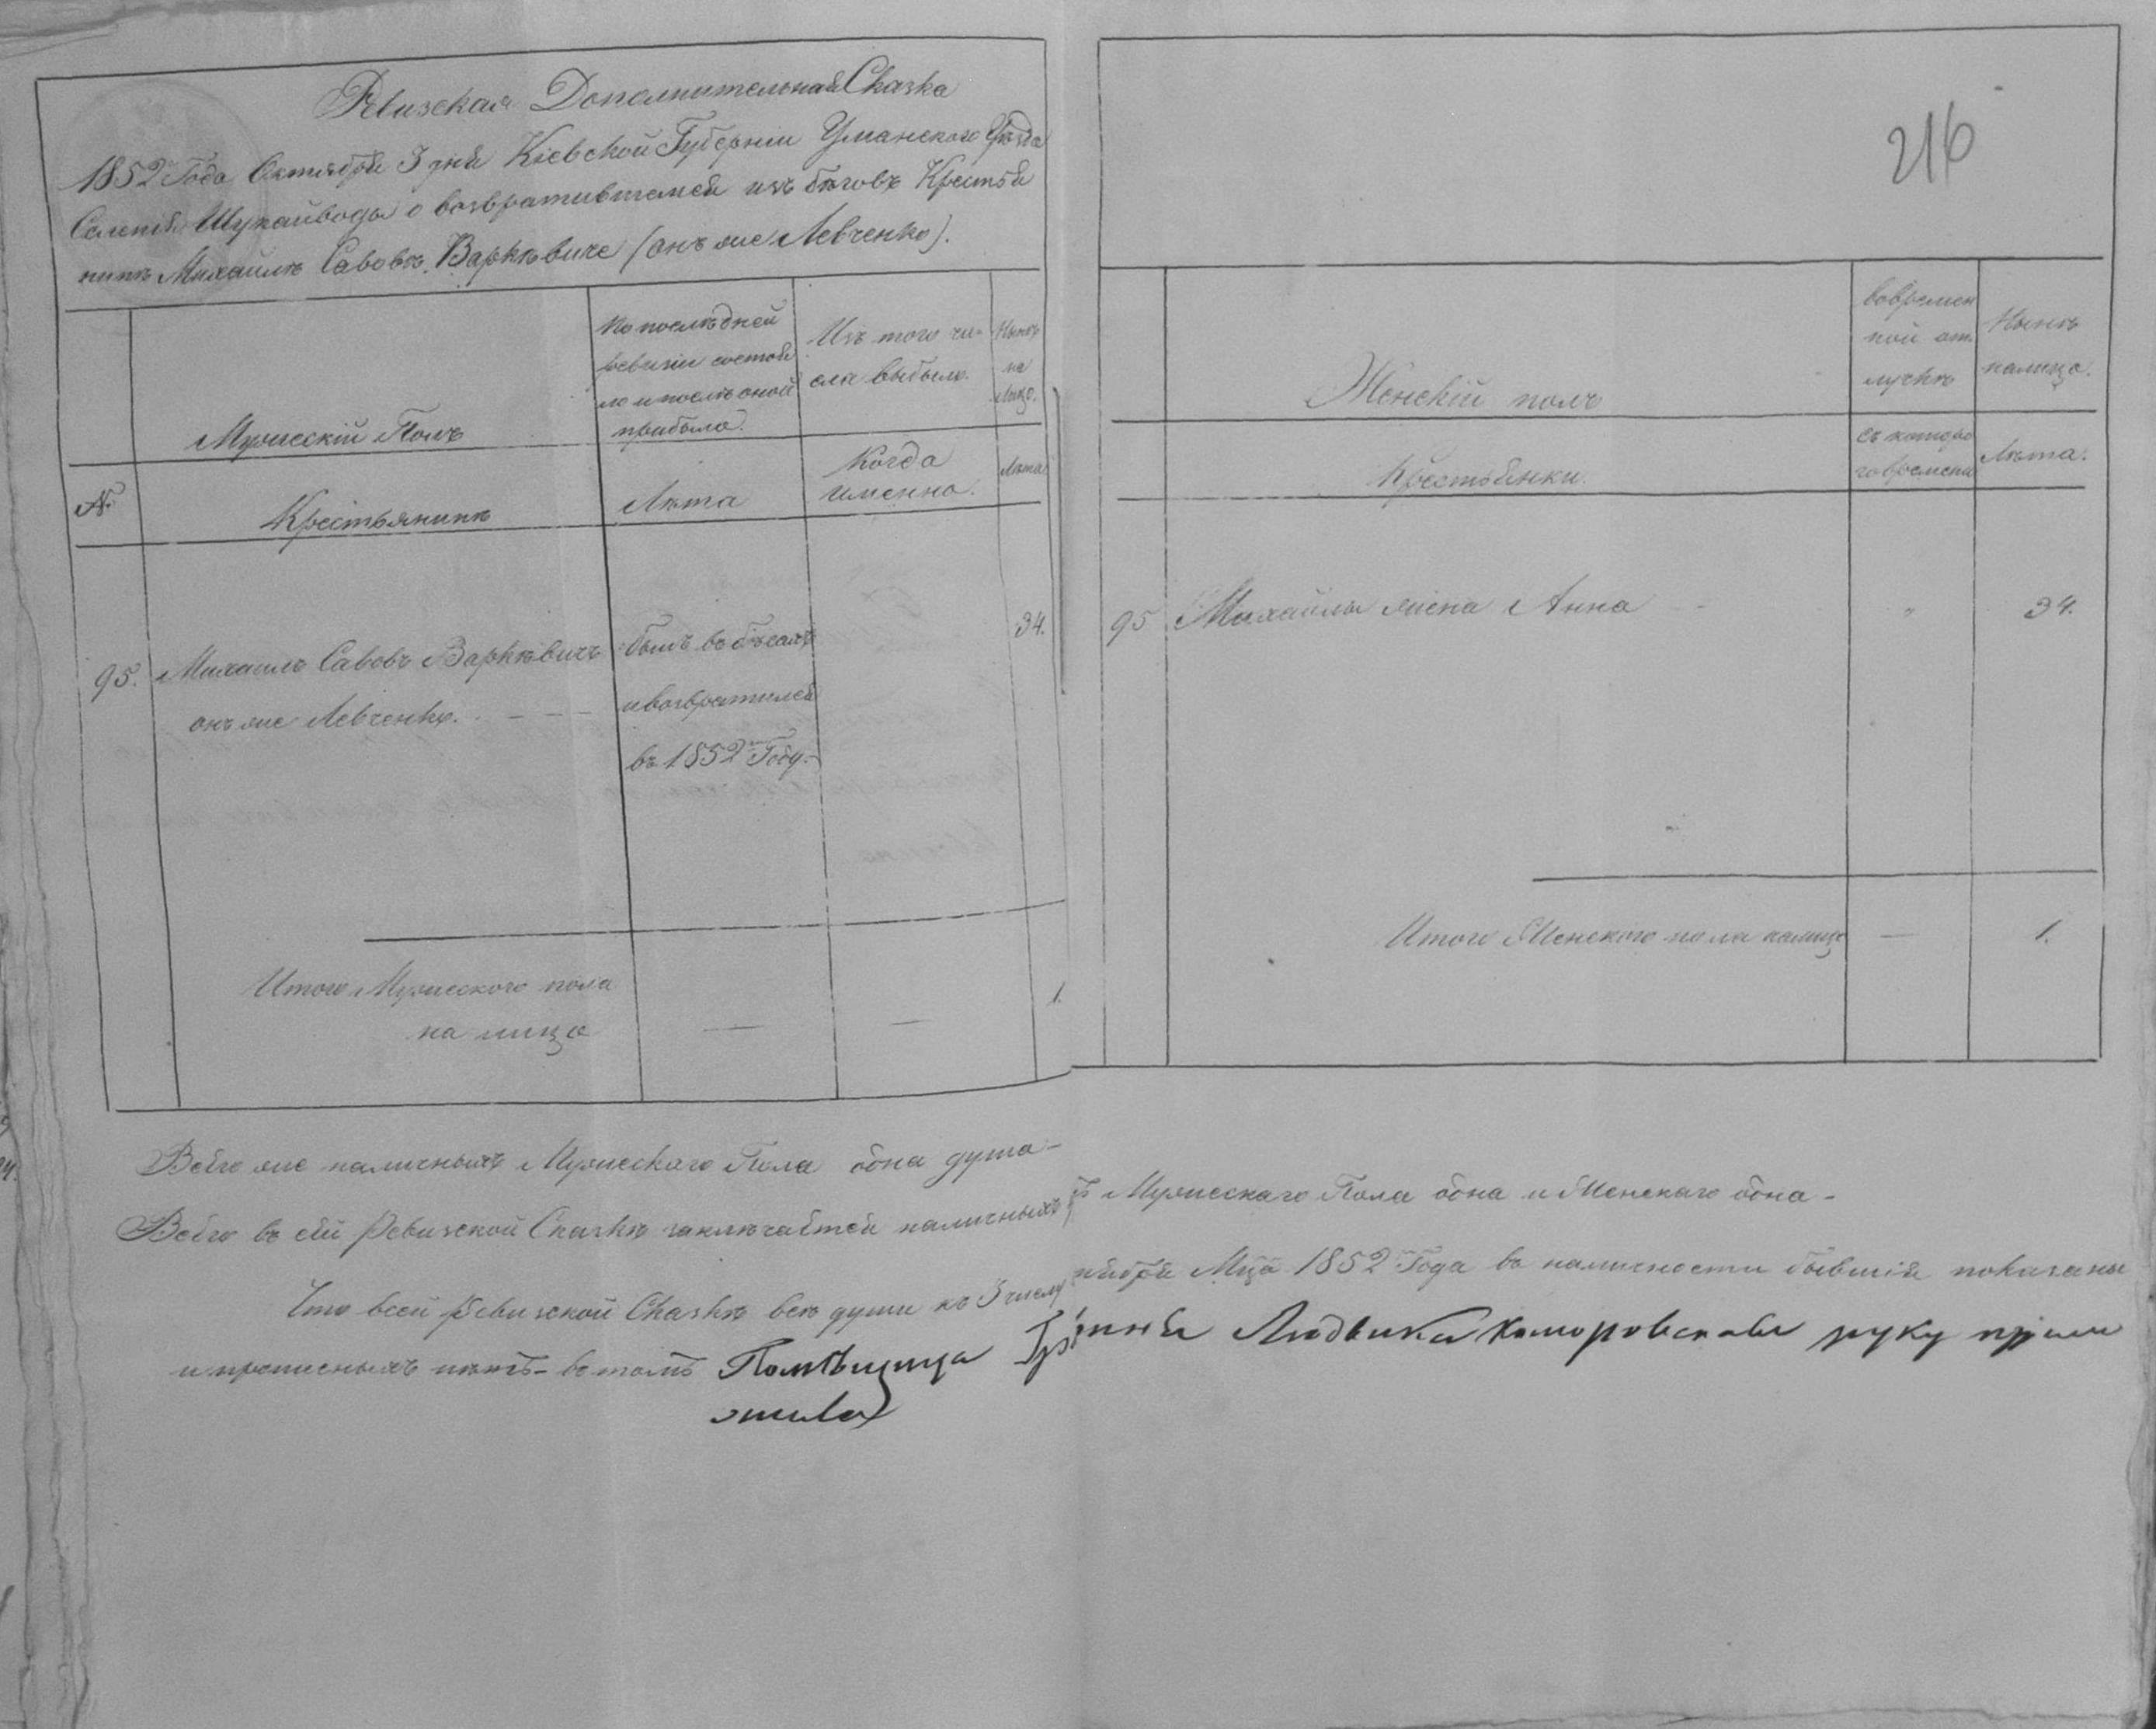 216
Ревизская Дополнительная Сказка
1852 Года Октября 3 дня Кіевской Губерніи Уманскаго Уѣзда
Селенія Шукайводы о возвратившемся изъ бѣговъ Крестья
нинѣ Михайлѣ Савовѣ Варкѣвиче (онъ же Левченко).
Мужескій Полъ
По послѣдней
ревизіи состоя
ло и послѣ оной
прибыло.
Изъ того чи-
сла выбыло.
Нынѣ
на
лицо.
№
Крестьянинъ
Лѣта
Когда
именно.
Лѣта
95. Михаилъ Савовъ Варкѣвичъ
онъ же Левченко.
былъ въ бѣгахъ
и возвратился
въ 1852 Году.
34.
Итого Мужескаго пола
на лицо
1.
Женскій полъ
во времен
ной от
лучкѣ
Нынѣ
налицо.
Крестьянки
съ которо
го времени
Лѣта.
95 Михайлы жена Анна " 34.
Итого Женскаго пола налицо 1.
Всего же наличныхъ Мужескаго Пола одна душа
Всего въ сей Ревизской Сказкѣ заключается наличныхъ Мужескаго Пола одна и Женскаго одна
Что в сей Ревизской Сказкѣ всѣ души къ числу Мца 1852 Года въ наличности бывшія показаны
и прописныхъ нѣтъ въ томъ Помѣщица Людвика Коморовская руку прило
жила